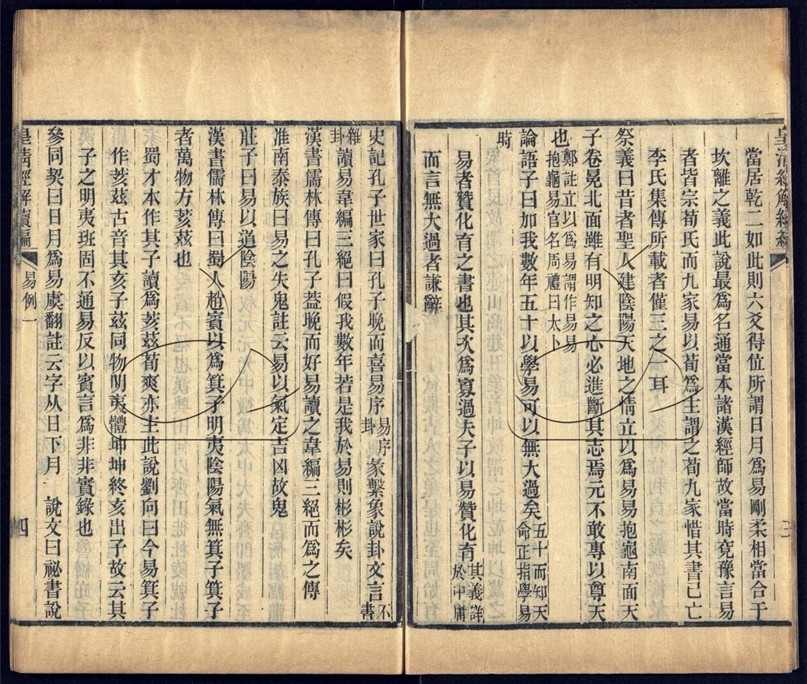 皇清經解續編
當居乾二如此則六爻得位所謂日月爲易剛柔相當合于
坎離之義此說最爲名通當本諸漢經師故當時競豫言易
者皆宗荀氏而九家易以荀爲主謂之荀九家惜其書已亡
李氏集傳所載者僅三之一耳
祭義曰昔者聖人建陰陽天地之情立以爲易易抱龜南面天
子卷冕北面雖有明知之心必進斷其志焉示不敢專以尊天
也鄭註立以爲易謂作易易抱龜易官名周禮曰太卜
論語子曰加我數年五十以學易可以無大過矣五十而知天命正指學易
時
易者贊化育之書也其次爲寡過夫子以易贊化育其義詳於中庸
而言無大過者謙辭
史記孔子世家曰孔子晚而喜易序易序卦彖繫象說卦文言不書
雜卦讀易韋編三絕曰假我數年若是我於易則彬彬矣
漢書儒林傳曰孔子蓋晚而好易讀之韋編三絕而爲之傳
淮南泰族曰易之失鬼註云易以氣定吉凶故鬼
莊子曰易以道陰陽
漢書儒林傳曰蜀人趙賓以爲箕子明夷陰陽氣無箕子箕子
者萬物方荄茲也
蜀才本作其子讀爲荄茲荀爽亦主此說劉向曰今易箕子
作荄茲古音其亥子茲同物明夷體坤坤終亥出子故云其
子之明夷班固不通易反以賓言爲非非實錄也
參同契曰日月爲易虞翻註云字从日下月 說文曰祕書說
皇清經解續編
易例一
四